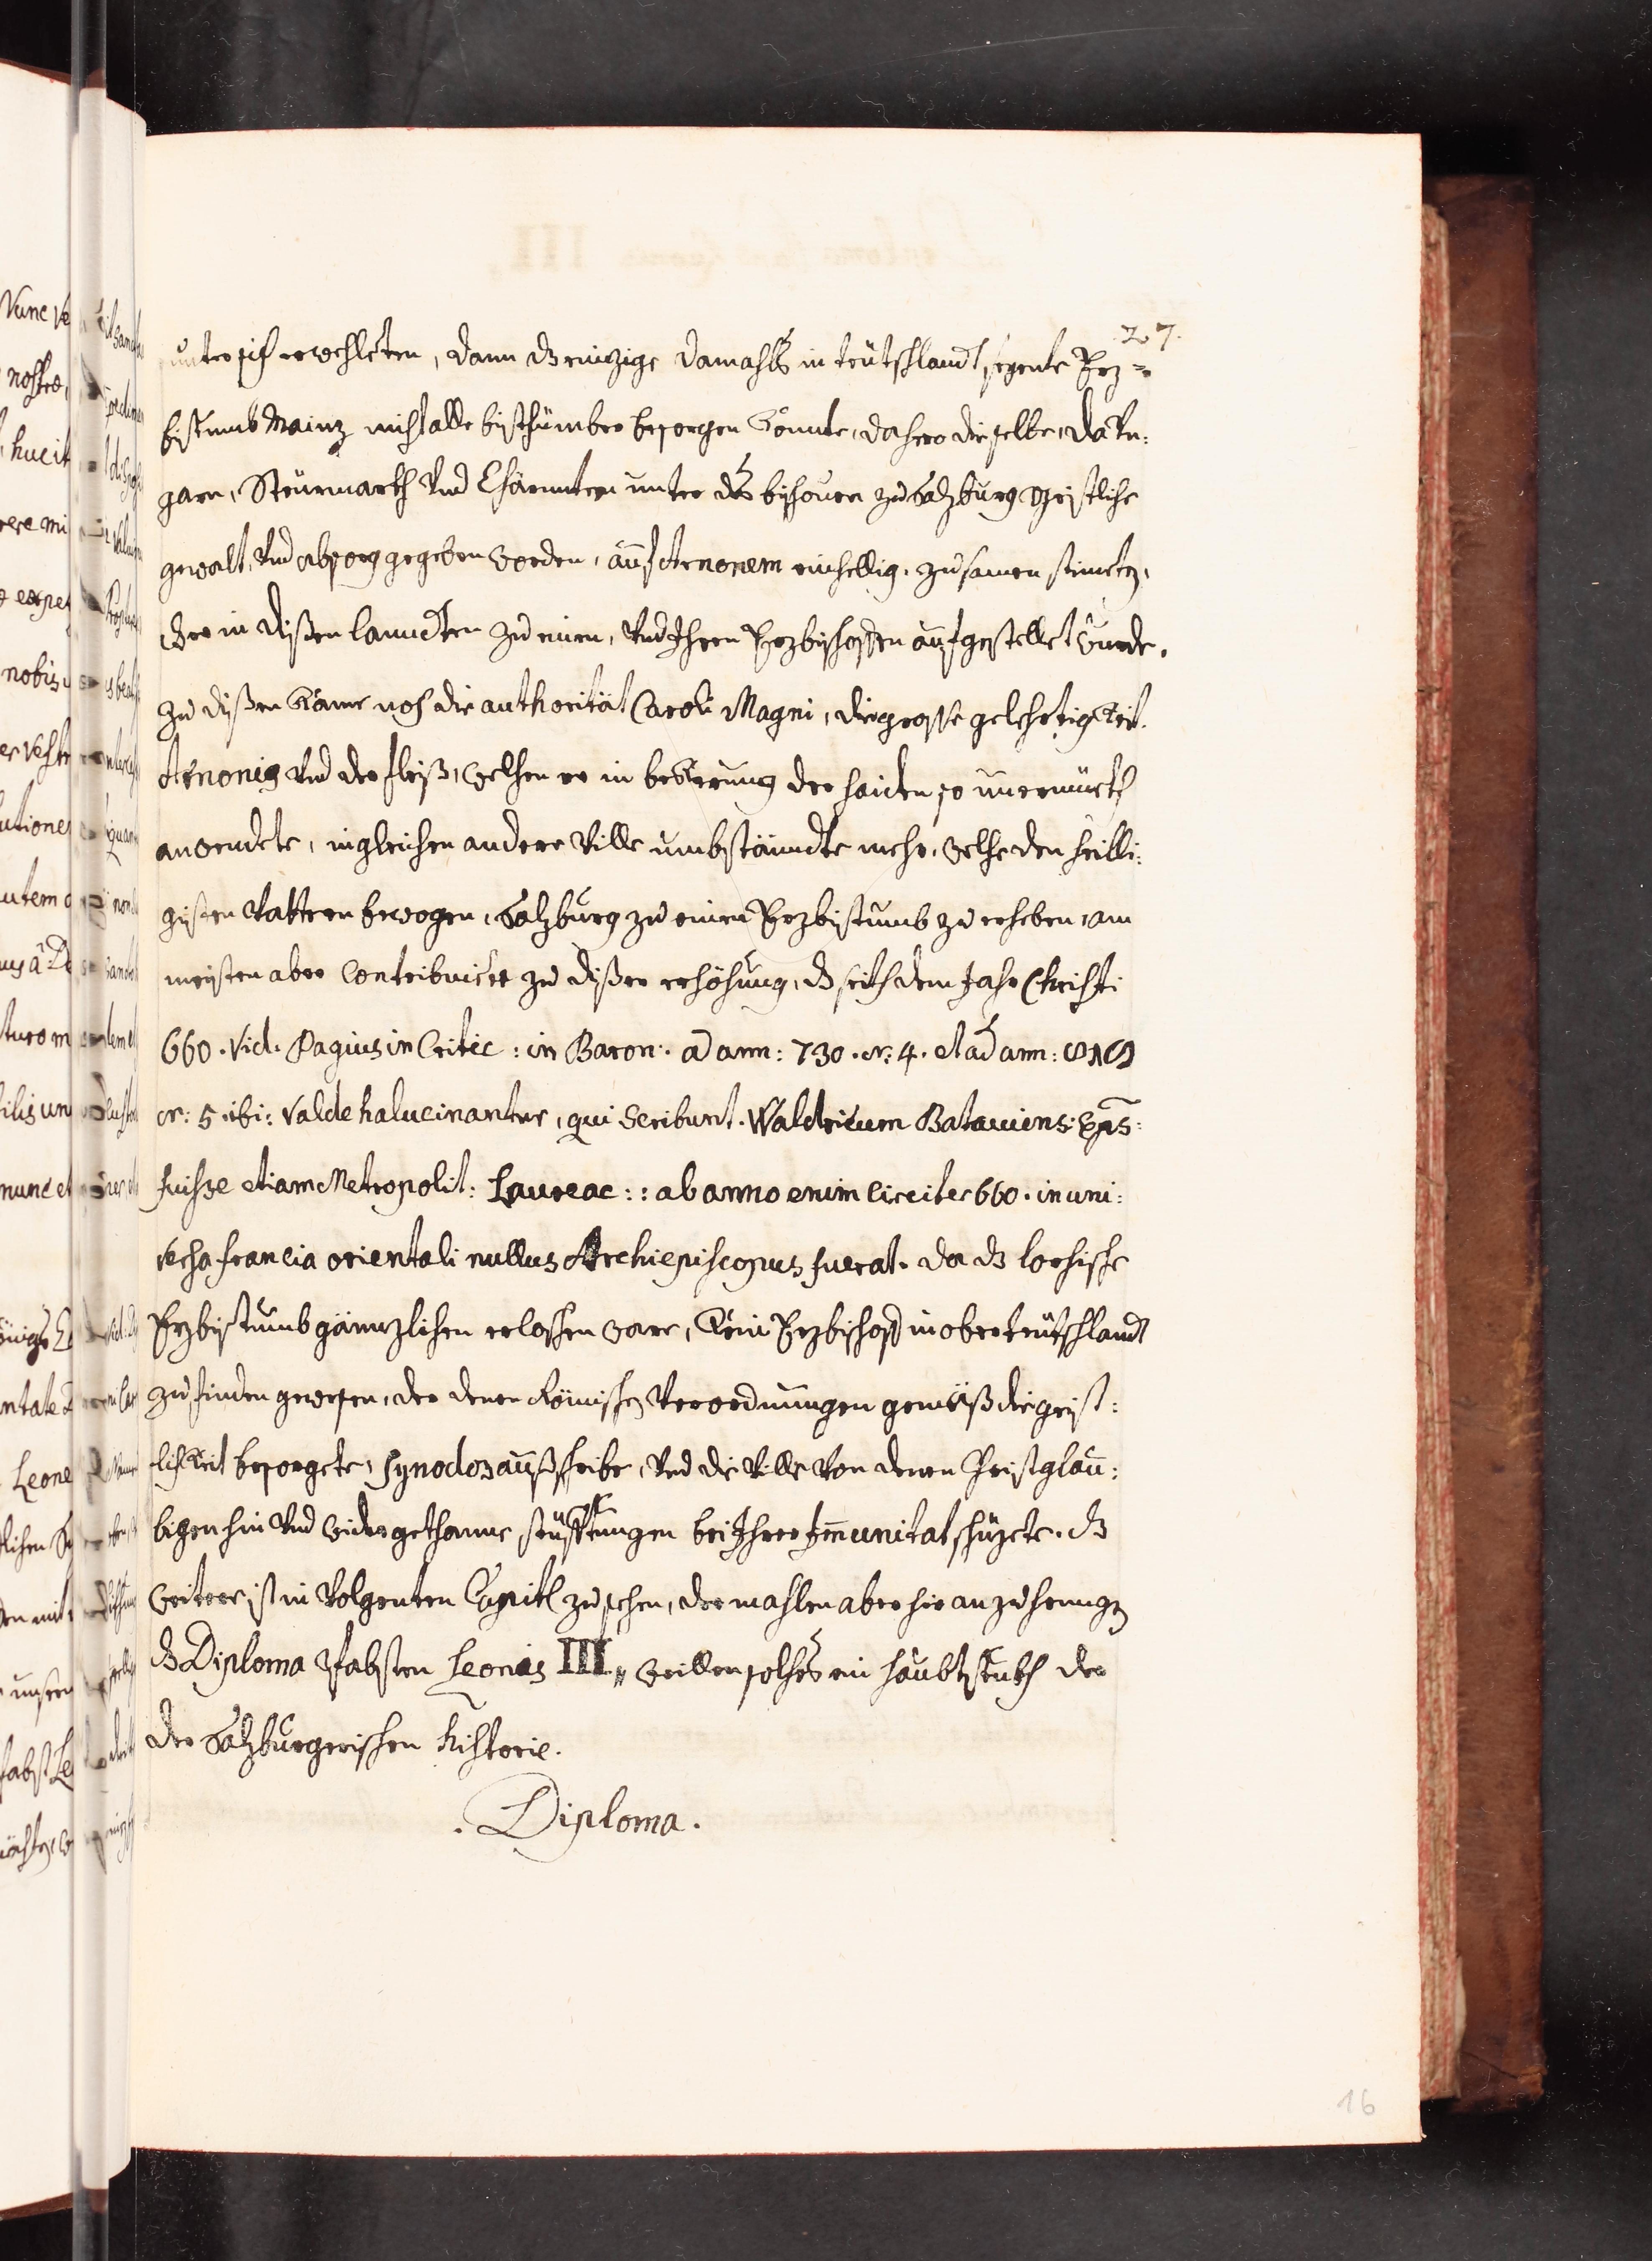 27.
unter sich erwehleten, dann dz einzige damahls in teütschlandt seyente Erz-
bistumb Mainz nicht alle bisthümber besorgen konnte, dahero dieselbe, da Vn:
garn, Steürmarch Vnd Chärnnten unter des bischouen zu Salzburg geistliche
gewalt, Vnd obsorg gegeben worden, auf Arnonem einhellig zusamen stimeten,
der in dißen landten zu einen, Vnd Ihren Erzbischoffen aufgestellet wurde.
Zu dißen käme noch die authorität Caroli Magni, die grosse gelehrtigkeit
Arnonis Vnd der fleiß, welchen er in bekerung der haiden so
anwendete, ingleichen andere Ville umbständte mehr, welche den heilli:
gisten Vattern bewogen, Salzburg zu einen Erzbistumb zu erheben, am
meisten aber Contribuirte zu dißer erhöhung, dz seith dem Jahr Christi
660. Vid. Pagius in Critic: in Baron: ad ann: 730. nr: 4. et ad ann:
nr: 5. ibi: Valde halucinantur, qui Scribunt. Waldricum Batauiens: Eps:
fuisse etiam Metropolit: Laureac:: ab anno enim Circiter 660. in uni:
versa francia orientali nullus Archiepiscopus fuerat. da dz lorchische
Erzbistumb gännzlichen erloschen ware, kein Erzbischoff in oberteütschlandt
zu finden gewesen, der denen Römischen Verordnungen gemäß die geist:
lichkeit besorgete, Synodos außschreibe, Vnd die Ville Von denen Christglau:
bigen hin Vnd wider gethanne stüfftungen bei Ihrer Im̄unitat schüzete. dz
weitere ist in Volgenten Capitl zu sehen, dermahlen aber hieran zu hengen
dz Diploma Pfabsten Leonis III. weillen solches ein haubtstuckh der
der Salzburgerischen historie.
. Diploma.
16